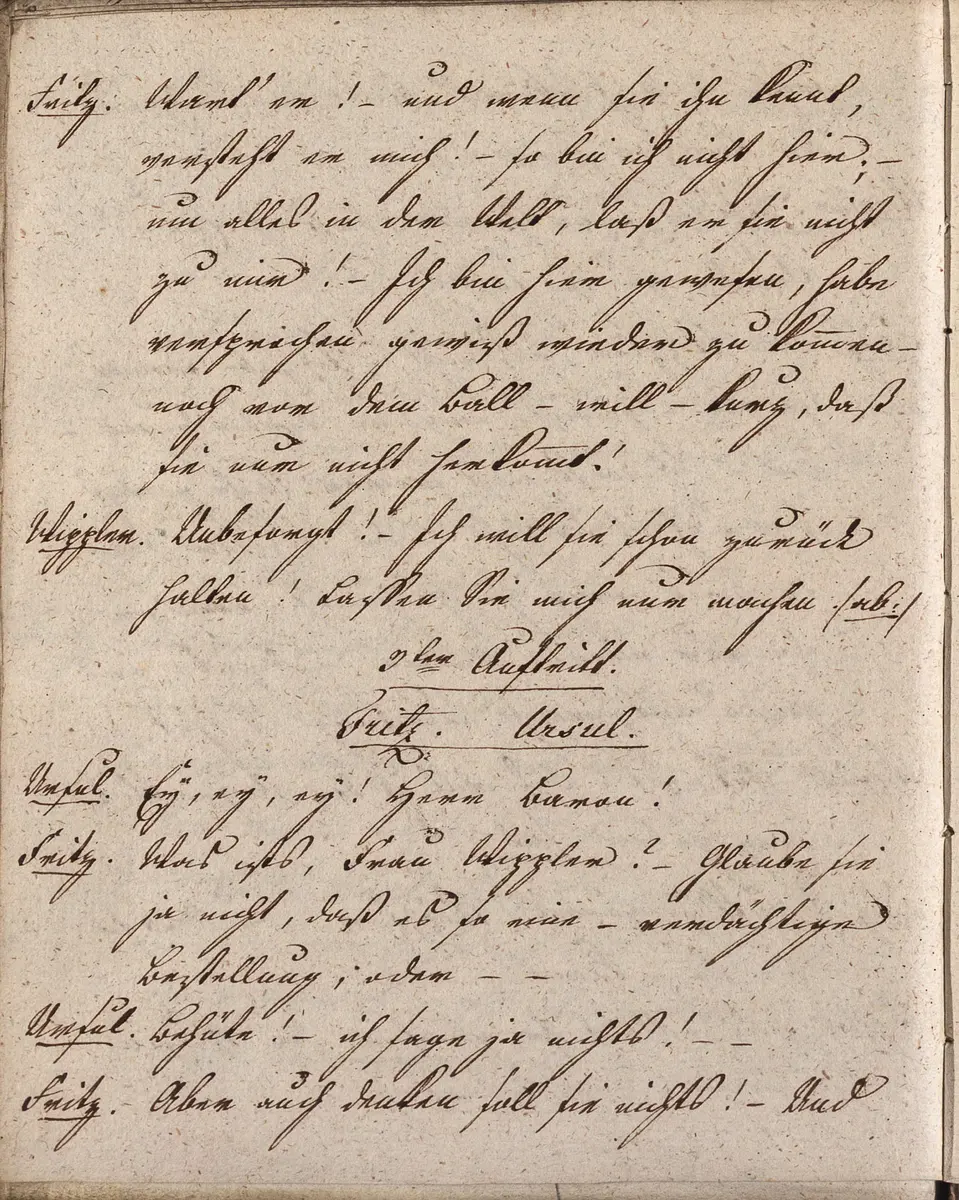 Fritz. Wart' er! – und wenn sie ihn kennt,
versteht er mich! – so bin ich nicht hier; –
um alles in der Welt, laß er sie nicht
zu mir! – Ich bin hier gewesen, habe
versprochen gewiß wieder zu kom̄en –
noch vor dem Ball – will – kurz, daß
sie nur nicht herkom̄t!
Wippler. Unbesorgt! – Ich will sie schon zurück
halten! Lassen Sie mich nur machen /:ab:/
3ter Auftritt.
Fritz. Ursul.
Ursul. Ey, ey, ey! Herr Baron!
Fritz. Was ists, Frau Wippler? – Glaube sie
ja nicht, daß es so eine – verdächtige
Bestellung; oder – –
Ursul. Behüte! – ich sage ja nichts! – –
Fritz. Aber auch denken soll sie nichts! – Und